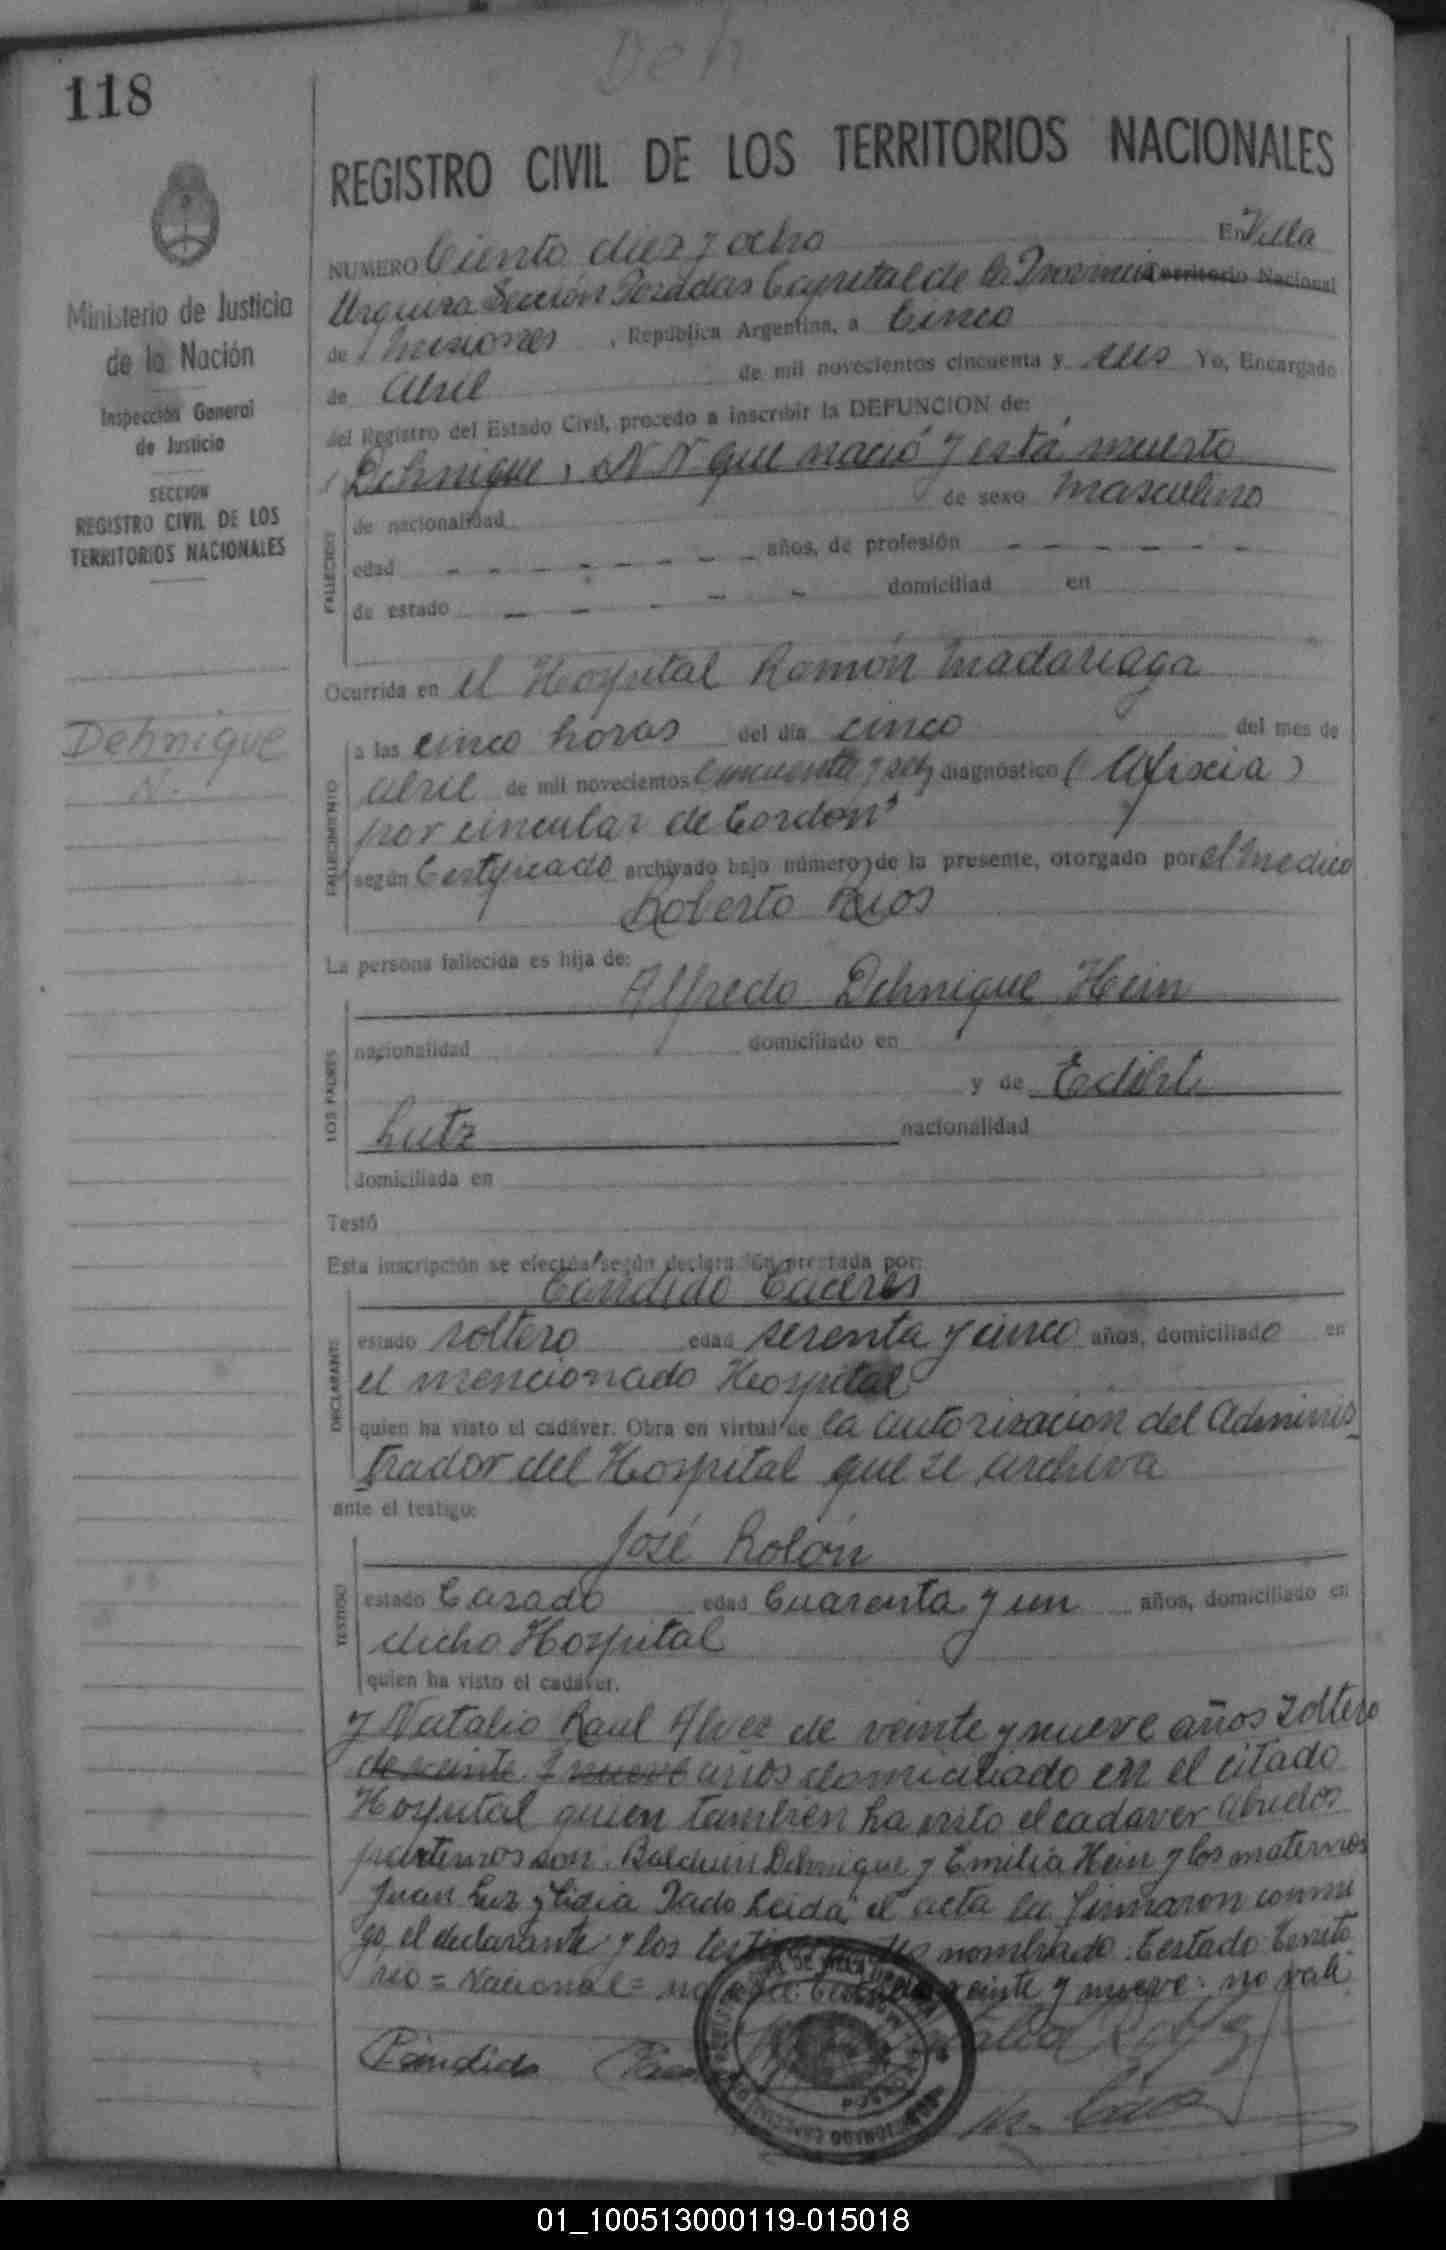 Deh
118
REGISTRO CIVIL DE LOS TERRITORIOS NACIONALES
Ministerio de Justicia
de la Nación
Inspección General
de Justicia
SECCION
REGISTRO CIVIL DE LOS
TERRITORIOS NACIONALES
Dehnique
N.
NUMERO Ciento diez y ocho En Villa
Urquiza Sección Posadas Capital de la Provincia Territorio Nacional
de Misiones , República Argentina, a Cinco
de Abril de mil novecientos cincuenta y seis Yo, Encargado
del Registro del Estado Civil, procedo a inscribir la DEFUNCION de:
Dehnique, N N que nació y está muerto
FALLECIDO
de nacionalidad de sexo Masculino
edad - - - - - - - años, de profesión - - - - - -
de estado - - - - - domiciliad en
Ocurrida en el Hospital Ramón Madariaga
FALLECIMIENTO
a las cinco horas del día cinco del mes de
abril de mil novecientos cincuenta y seis diagnóstico ( Afixia )
por circular de Cordón
según Certificado archivado bajo número de la presente, otorgado por el medico
Roberto Rios
La persona fallecida es hija de:
Alfredo Dehnique Hein
LOS PADRES
nacionalidad domiciliado en
y de
Lutz nacionalidad
domiciliada en
Testó
Esta inscripción se efectúa según declaración prestada por:
Candido Caceres
DECLARANTE
estado soltero edad sesenta y cinco años, domiciliado en
el mencionado Hospital
quien ha visto el cadáver. Obra en virtud de la autorización del Adminis_
trador del Hospital que se archiva
ante el testigo:
José Rolón
TESTIGO
estado Casado edad Cuarenta y un años, domiciliado en
dicho Hospital
quien ha visto el cadáver.
y Natalio Raul Alvez de veinte y nueve años soltero
de veinte y nueve años domiciliado en el citado
Hospital quien tambien ha visto el cadaver abuelos
paternos son Balduin Dehnique y Emilia Hein y los maternos
Juan Luz y Lidia Leida el acta la firmaron conmi
go, el declarante y los nombrado. Testado: Territo
rio = Nacional = no veinte y nueve: no vale
Candido
01_100513000119-015018